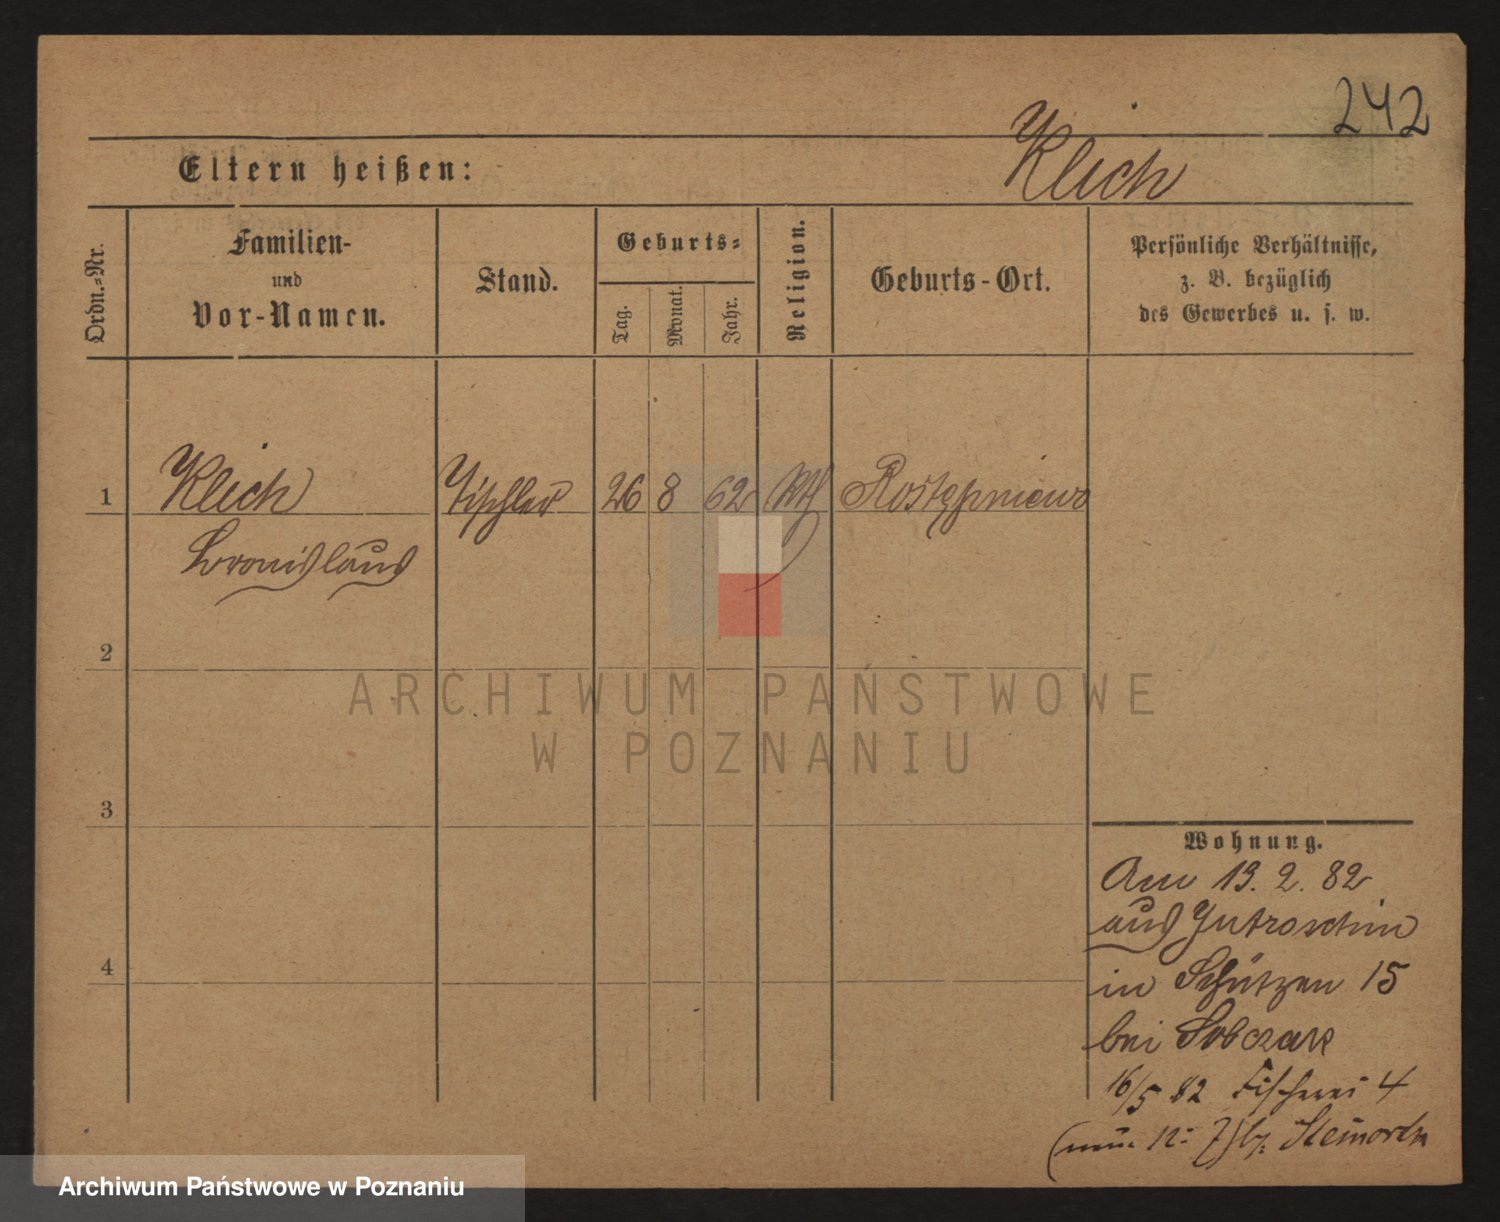 242
Klich
Eltern heißen:
Ordn.-Nr.
Familien-
und
Vor-Namen.
Stand.
Geburts-
Tag.
Monat.
Jahr.
Religion.
Geburts-Ort.
Persönliche Verhältnisse,
z. B. bezüglich
des Gewerbes u. s. w.
1 Klich Tischler 26 8 62 Kth Rostempniewo
Bronislaus
2
3
4
ARCHIWUM PAŃSTWOWE
W POZNANIU
Wohnung.
Am 13. 2. 82
aus Jutroschin
in Schützen 15
bei Sobczak
16/5 82 Fischerei 4
(neue 12: 7) bz.
Archiwum Państwowe w Poznaniu